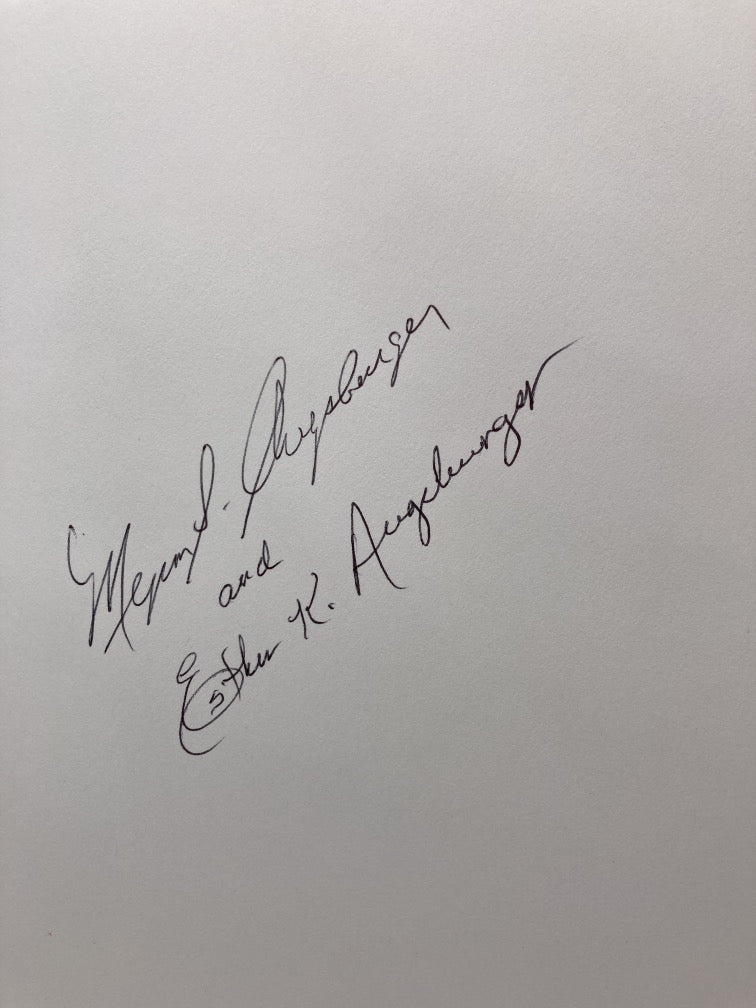 Myron S. Augsburger
and
Esther K. Augsburger